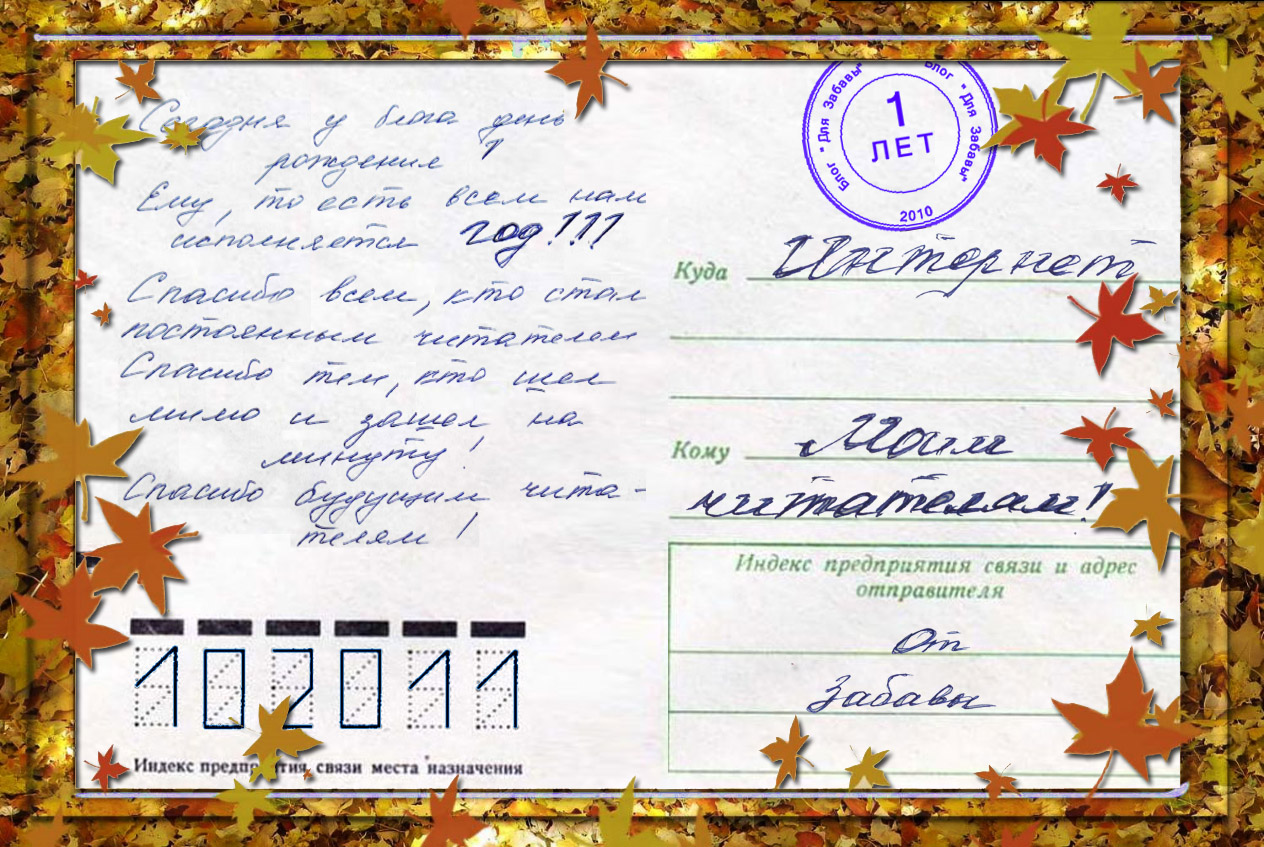 Сегодня у блога день
рождения!
Ему, то есть всем нам
исполняется год!!!
Спасибо всем, кто стал
постоянным читателем
Спасибо тем, кто шел
мимо и зашел на
минуту!
Спасибо будущим чита-
телям!
102011
Индекс предприятия связи места назначения
Блог "Для Забавы" Блог "Для Забавы"
1
ЛЕТ
2010
Куда Интернет
Кому Моим
читателям!
Индекс предприятия связи и адрес
отправителя
От
Забавы